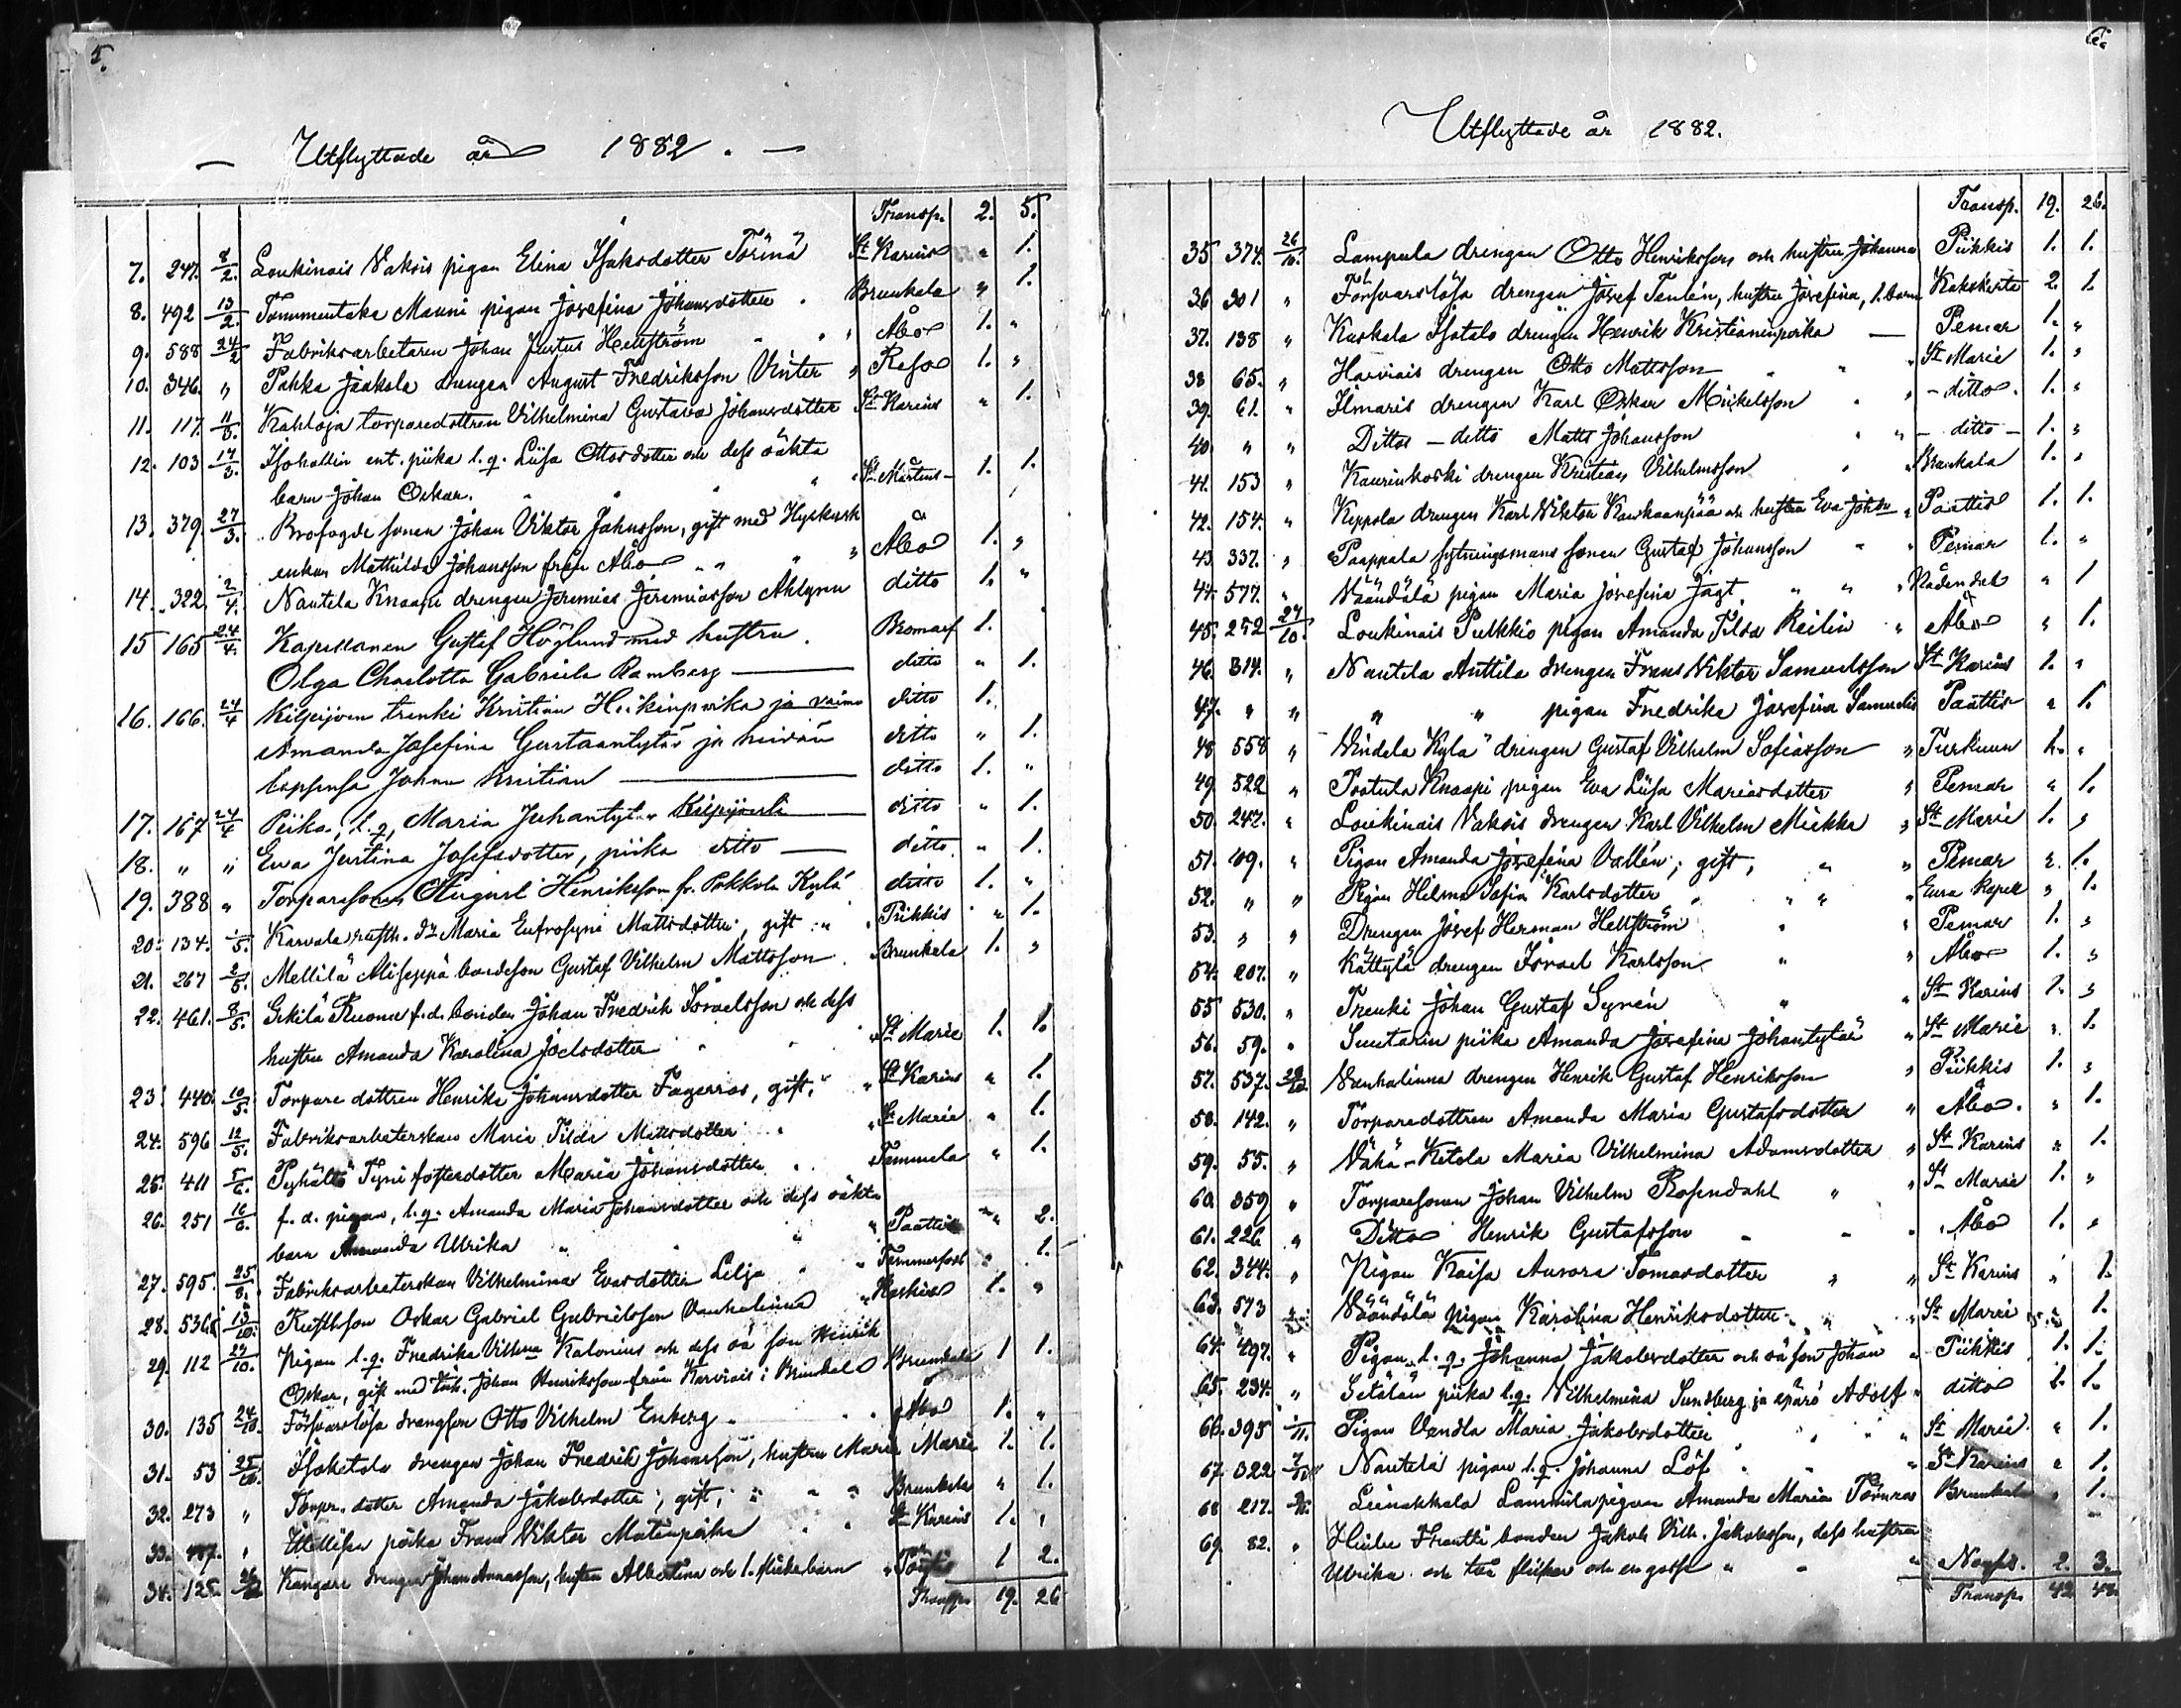 5.
Utflyttade år 1882.
Transp. 2. 5.
7. 247. 8/2. Loukinais Vaksis pigan Elina Isaksdotter Törmä St Karins " 1.
8. 492 13/2. Tammentaka Mauni pigan Josefina Johansdotter. Brunkala " 1.
9. 588 24/2 Fabriksarbetaren Johan Justus Hellström " " Åbo 1. "
10. 346. " Pahka Jaakola drengen August Fredriksson Vinter " Reso 1. "
11. 117. 11/3. Kahloja torparedottren Vilhelmina Gustava Johansdotter St Karins " 1.
12. 103 17/3. Isohallin ent. piika l.q. Liisa Ottosdotter och dess oäkta
barn Johan Oskar. " " " " St Mårtens 1. 1.
13. 379. 27/3. Brofogde sonen Johan Viktor Johansson, gift med Hyrkusk
enkan Mathilda Johansson från Åbo " " " Åbo 1. "
14. 322 2/4. Nautela Knaapi drengen Jeremias Jeremiasson Ahlgren ditto 1. "
15 165 24/4. Kapellanen Gustaf Höglund med hustru. Bromarf 1.
Olga Charlotta Gabriela Ramberg ditto " 1.
16. 166. 24/4 Kilpijoen trenki Kristian Heikinpoika ja vaimo ditto 1.
Amanda Josefina Gustaantytär ja heidän ditto " 1.
lapsensa Johan Kristian ditto 1. "
17. 167 24/4 Piika, l.q, Maria Juhantytär Kilpijoelta ditto " 1.
18. " " Eva Justina Josefsdotter, piika ditto ditto. " 1.
19. 388 " Torparesonen August Henriksson fr. Pokkola Kylä ditto 1. "
20. 134. /5. Karvala rusth. dr Maria Eufrosyne Mattsdotter, gift " Piikkis " 1.
21. 267 2/5. Mellilä Aliseppä bondeson Gustaf Vilhelm Mattsson. Brunkala 1. "
22. 461. 8/5. Erkilä Ruona f.d. bonden Johan Fredrik Israelsson och dess
hustru Amanda Karolina Joelsdotter " " St Marie 1. 1.
23. 440. 10/5. Torpare dottren Henrika Johansdotter Fagerroos, gift, " St Karins " 1.
24. 596 12/5. Fabriksarbeterskan Maria Tilda Mattsdotter " St Marie " 1.
25. 411 5/6. Pyhältö Tyni fosterdotter Maria Johansdotter. Tammela " 1.
26. 251 16/6. f.d. pigan, l.q. Amanda Maria Johansdotter och dess oäkta
barn Amanda Ulrika " " " Paattis " 2.
27. 595. 25/8. Fabriksarbeterskan Vilhelmina Evasdotter Lilja " Tammerfors " 1.
28. 536. 13/10. Rusthson Oskar Gabriel Gabrielsson Vanhalinna " Koskis 1. "
29. 112 24/10. Pigan l.q. Fredrika Vilhna Kalonius och dess oä son Henrik
Oskar, gift med Johan Henriksson från Karviais i Brunkala Brunkala 1 1.
30. 135 24/10. Försvarslösa drengson Otto Vilhelm Enberg. Åbo 1. "
31. 53 25/10. Isoketola drengen Johan Fredrik Johansson, hustru Maria Marie 1. 1.
32. 273 " Torpr. dotter Amanda Jakobsdotter, gift, " " " Brunkala " 1.
33. " piika Frans Viktor Matinpoika " " St Karins 1. "
34. 125. 26/10 Kangare drengen Johan Annasson, hustru Albertina och 1. flickebarn " 1 2.
Transp. 19. 26

6.
Utflyttade år 1882.
Transp. 19. 26.
35 374. 26/10. Lampula drengen Otto Henriksson och hustru Johanna Piikkis 1. 1.
36 301 " Försvarslösa drengen Josef Tenlén, hustru Josefina, 1. barn Kakskerta 2 1.
37. 138 " Kuskala Isotalo drengen Henrik Kristianinpoika Pemar 1. "
38 65. " Harviais drengen Otto Mattsson " " " St Marie 1. "
39. 61. " Ilmaris drengen Karl Oskar Mickelsson " " ditto. 1. "
40. " " Ditto ditto Matts Johansson " " ditto 1. "
41. 153 " Kaurinkoski drengen Kristian Vilhelmsson " " Brunkala 1. "
42. 154. " Keppola drengen Karl Viktor Kauhaanpää och hustru Eva Johdr " Paattis 1. 1.
43 337. " Paappala sytningsmans sonen Gustaf Johansson " " Pemar 1. "
44. 577. " Väändälä pigan Maria Josefina Jagt. " " " Nådendal " 1
45. 252 27/10. Loukinais Pulkkio pigan Amanda Tilda Reilin " Åbo " 1.
46. 314. " Nautela Anttila drengen Frans Viktor Samuelsson St Karins 1. "
47. " " " " pigan Fredrika Josefina Samuelsdr Paattis " 1.
48 558 " Vindela Kylä drengen Gustaf Vilhelm Sofiasson " Turkuun 1. "
49. 522 " Paatula Knaapi pigan Eva Liisa Mariasdotter " Pemar " 1.
50. 247. " Loukinais Vaksis drengen Karl Vilhelm Miekka " St Marie 1. "
51. 49. " Pigan Amanda Josefina Vallén; gift, " " Pemar " 1.
52. " " Pigan Hilma Sofia Karlsdotter " " " Eura Kapell " 1.
53. " " Drengen Josef Herman Hellström " " Pemar 1. "
54. 207. " Kättylä drengen Israel Karlsson " " Åbo 1. "
55 530. " Trenki Johan Gustaf Syrén " " St Karins 1. "
56. 59. " Suutarin piika Amanda Josefina Johantytär " St Marie " 1.
57. 537. 28/10 Vanhalinna drengen Henrik Gustaf Henriksson " Piikkis 1. "
58. 142. " Torparedottren Amanda Maria Gustafsdotter " Åbo. " 1.
59. 55. " Vähä-Ketola Maria Vilhelmina Adamsdotter " St Karins " 1.
60. 359 " Torparesonen Johan Vilhelm Rosendahl " " St Marie 1. "
61. 226 " Ditto Henrik Gustafsson " " " Åbo 1. "
62. 344. " Pigan Kaisa Aurora Tomasdotter " " St Karins " 1.
63. 573 " Väändälä pigan Karolina Henriksdotter " " St Marie " 1.
64. 497. " Pigan l.q. Johanna Jakobsdotter och oä son Johan " Piikkis 1. 1.
65. 234. " Setälän piika l.q. Vilhelmina Sundberg ja äpärä Adolf " ditto 1. 1.
66. 395 /11. Pigan Vendla Maria Jakobsdotter " " " St Marie " 1.
67. 322 Nautelä pigan l.q. Johanna Löf " " " St Karins " 1.
68 217. Leinakkala Lammila pigan Amanda Maria Törnroos Brunkala " 1.
69. 82. " Frantti bonden Jakob Vilh. Jakobsson, dess hustru
Ulrika och två flickor och en gosse " " " 2. 3.
Transp. 42. 48.